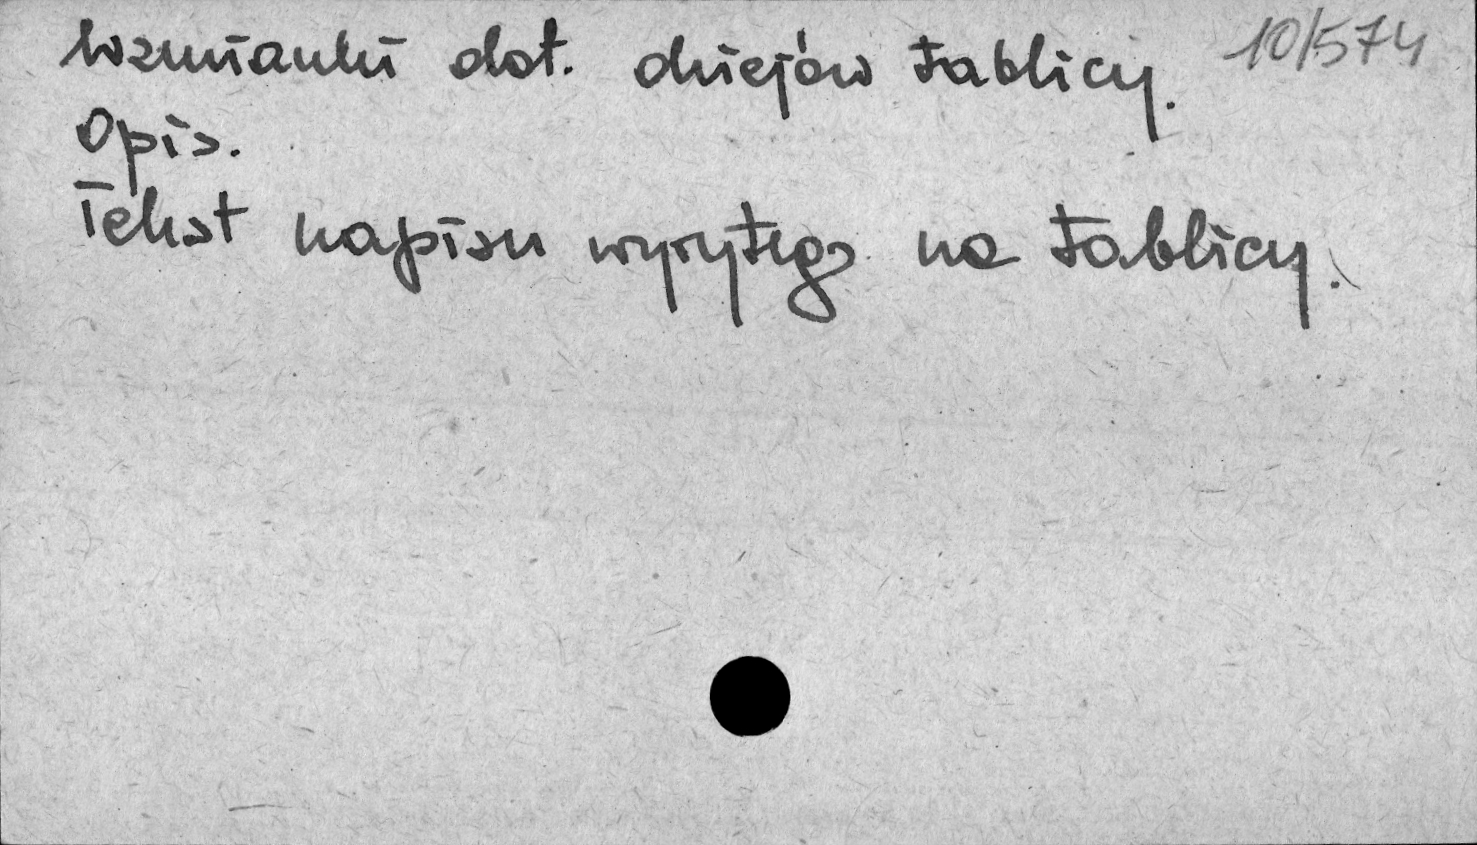 Wzmianki dot. dziejów tablicy. 10/574
Opis.
Tekst napisu wyrytego na tablicy.